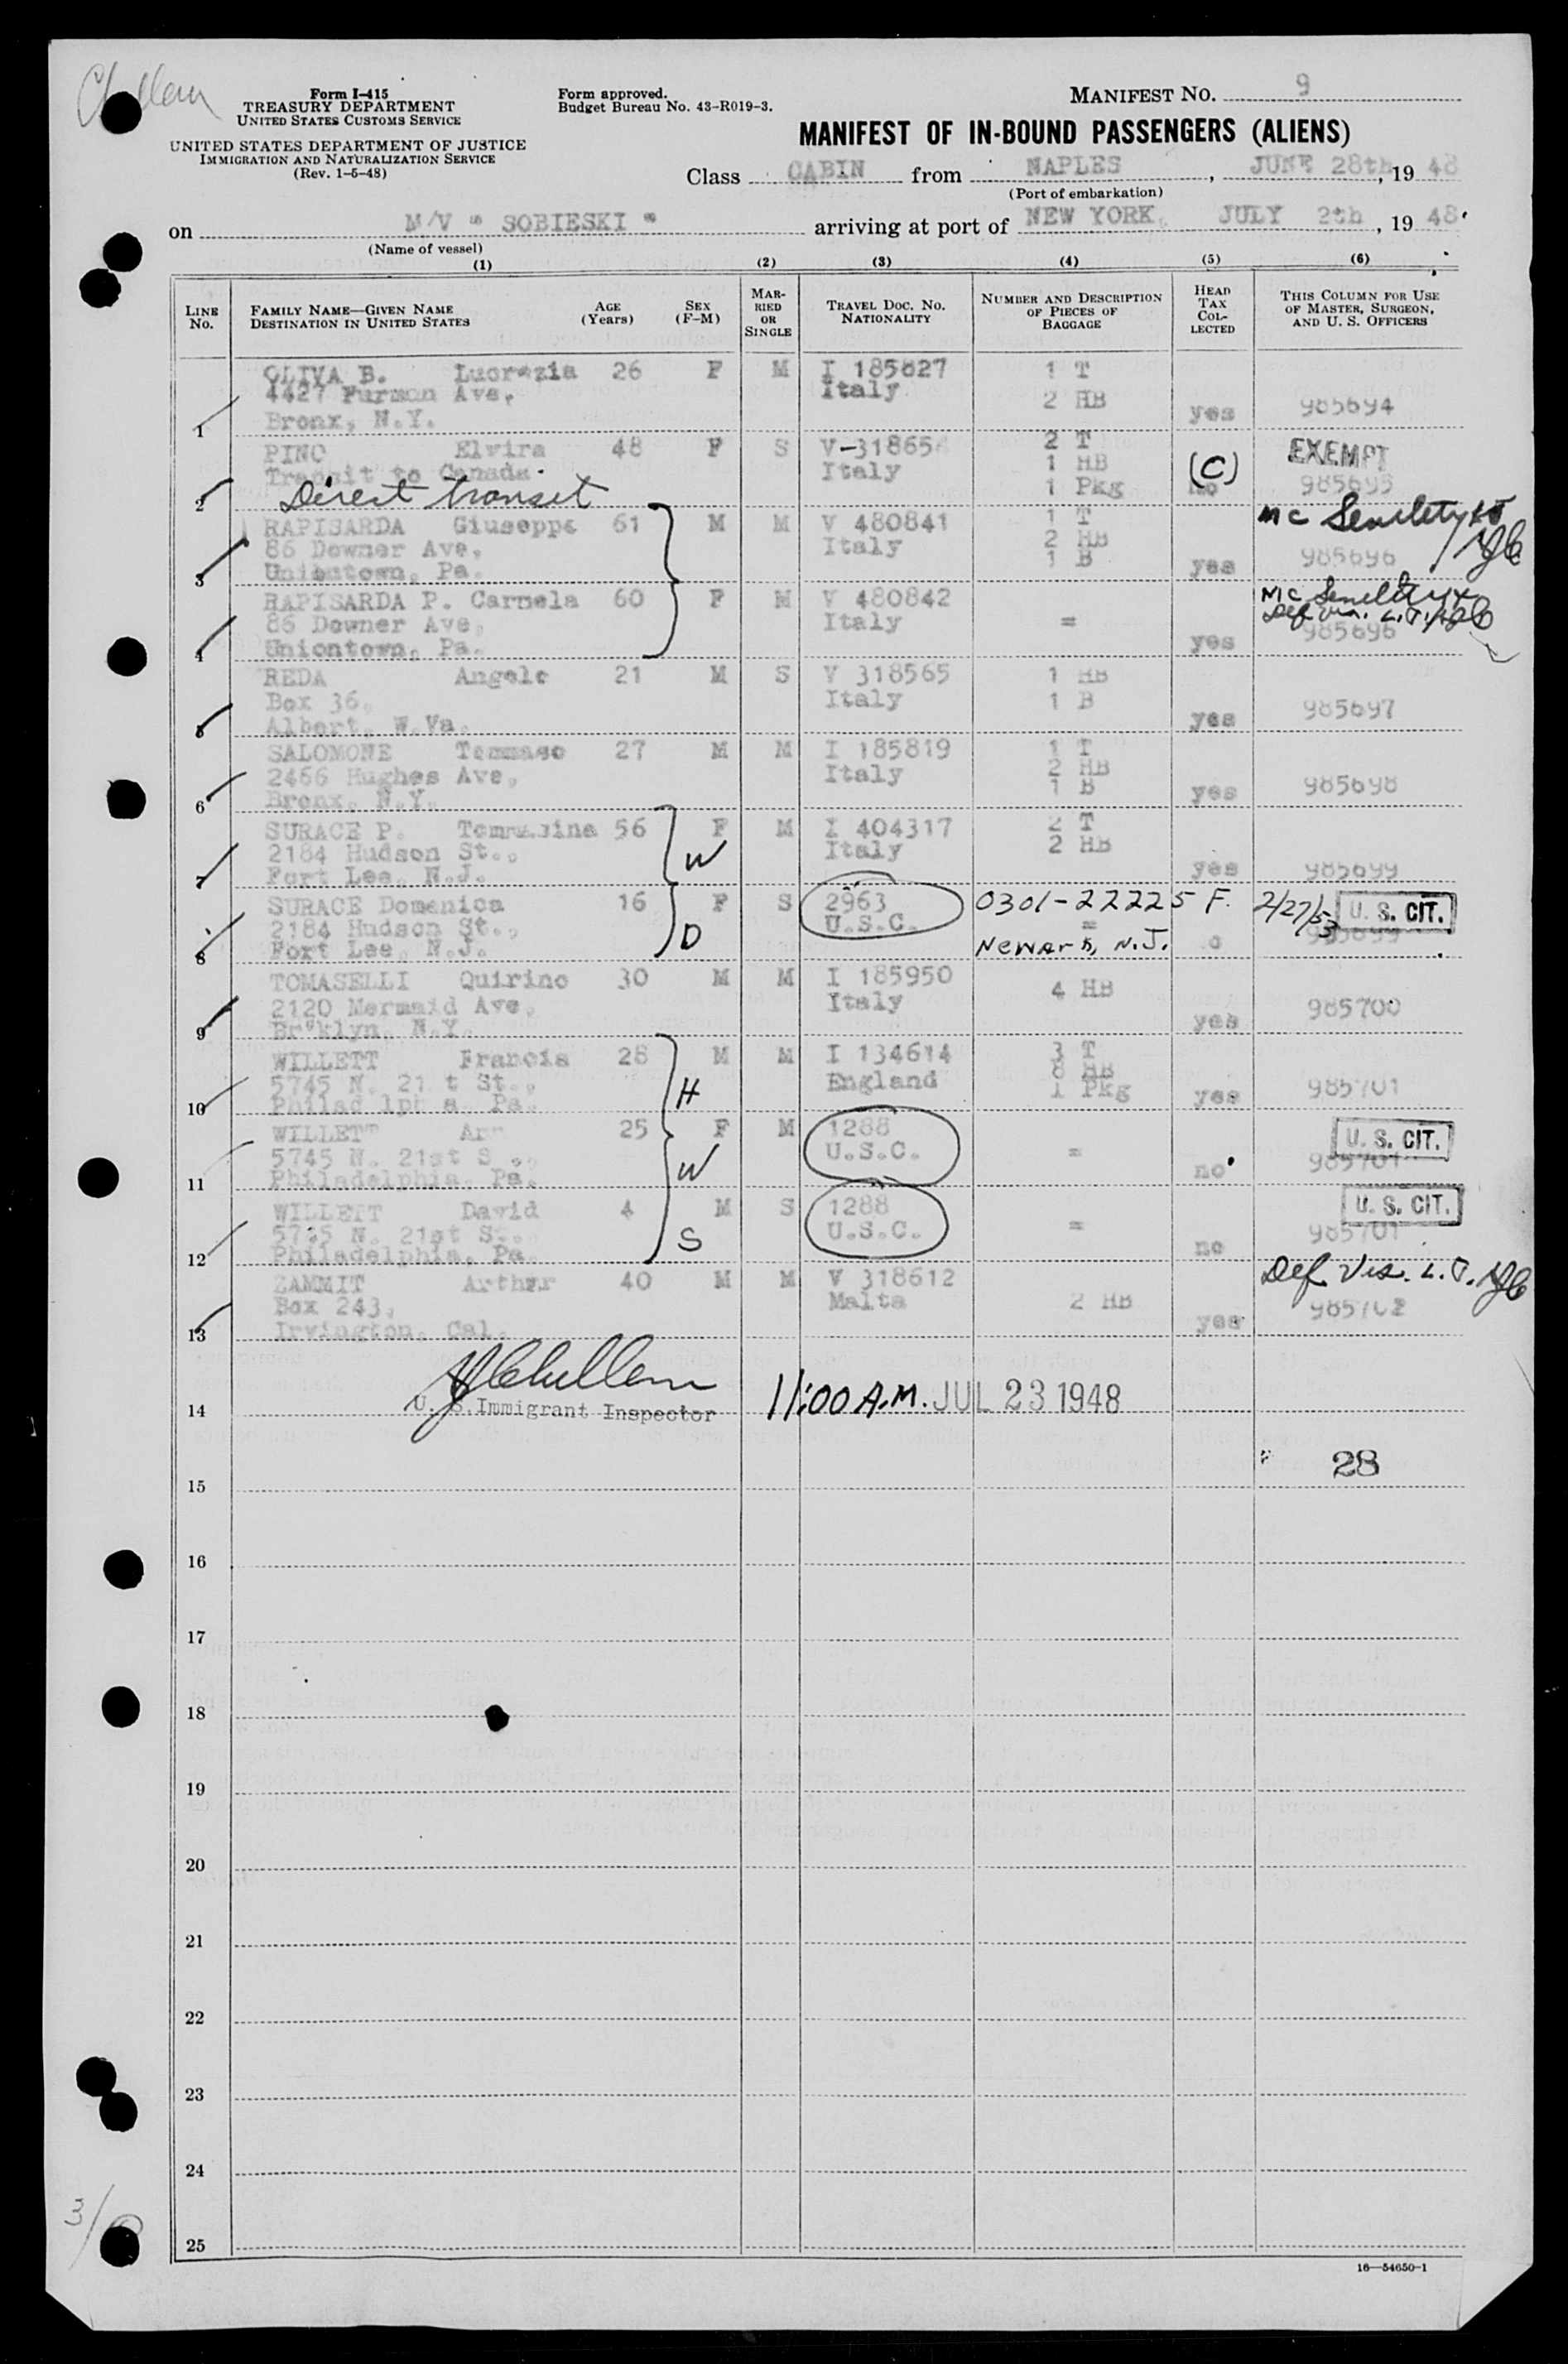 Form I-415
TREASURY DEPARTMENT
UNITED STATES CUSTOMS SERVICE
UNITED STATES DEPARTMENT OF JUSTICE
IMMIGRATION AND NATURALIZATION SERVICE
(Rev. 1-5-48)
Form approved.
Budget Bureau No. 43-R019-3.
MANIFEST NO. 9
MANIFEST OF IN-BOUND PASSENGERS (ALIENS)
Class CABIN from NAPLES, JUNE 28th, 19 48
(Port of embarkation)
on M/V " SOBIESKI " arriving at port of NEW YORK, JULY 2th, 19 48
(Name of vessel)
(1) (2) (3) (4) (5) (6)
LINE No. FAMILY NAME—GIVEN NAME DESTINATION IN UNITED STATES AGE (Years) SEX (F-M) MARRIED OR SINGLE TRAVEL DOC. NO. NATIONALITY NUMBER AND DESCRIPTION OF PIECES OF BAGGAGE HEAD TAX COLLECTED THIS COLUMN FOR USE OF MASTER, SURGEON, AND U. S. OFFICERS
OLIVA B. Lucrezia 26 F M I 185827 1 T
4427 Furman Ave, Italy 2 HB
1 Bronx, N.Y. yes 985694
PINO Elvira 48 F S V-318654 2 T EXEMPT
Transit to Canada. Italy 1 HB (C)
2 Direct transit 1 Pkg no 985695
RAPISARDA Giuseppe 61 M M V 480841 1 T MC Senility
86 Downer Ave, Italy 2 HB
3 Uniontown, Pa. 1 B yes 985696
RAPISARDA P. Carmela 60 F M V 480842 MC Senility
86 Downer Ave, Italy = Def Vis. L.
4 Uniontown, Pa. yes 985696
REDA Angelo 21 M S V 318565 1 HB
Box 36, Italy 1 B
5 Albert, W.Va. yes 985697
SALOMONE Tommaso 27 M M I 185819 1 T
2466 Hughes Ave, Italy 2 HB
6 Bronx, N.Y. 1 B yes 985698
SURACE P. Tommasina 56 F M I 404317 2 T
2184 Hudson St., W Italy 2 HB
7 Fort Lee, N.J. yes 985699
SURACE Domenica 16 F S 2963 0301-22225 F. 2/27/53 U. S. CIT.
2184 Hudson St., D U.S.C. =
8 Fort Lee, N.J. Newark, N.J. 985699
TOMASELLI Quirino 30 M M I 185950 4 HB
2120 Mermaid Ave, Italy
9 Br"klyn, N.Y. yes 985700
WILLETT Francis 28 M M I 134614 3 T
5745 N. 21 t St., H England 8 HB
10 Philad lph a, Pa. 1 Pkg yes 985701
WILLETT Ann 25 F M 1288 U. S. CIT.
5745 N. 21st S ., W U.S.C. =
11 Philadelphia, Pa. no 985701
WILLETT David 4 M S 1288 U. S. CIT.
5745 N. 21st St., S U.S.C. =
12 Philadelphia, Pa. no 985701
ZAMMIT Arthur 40 M M V 318612 Def Vis. L.
Box 243, Malta 2 HB
13 Irvington, Cal. yes 985702
14 U. S. Immigrant Inspector 11:00 A.M. JUL 23 1948
28
15
16
17
18
19
20
21
22
23
24
25
16—54650-1